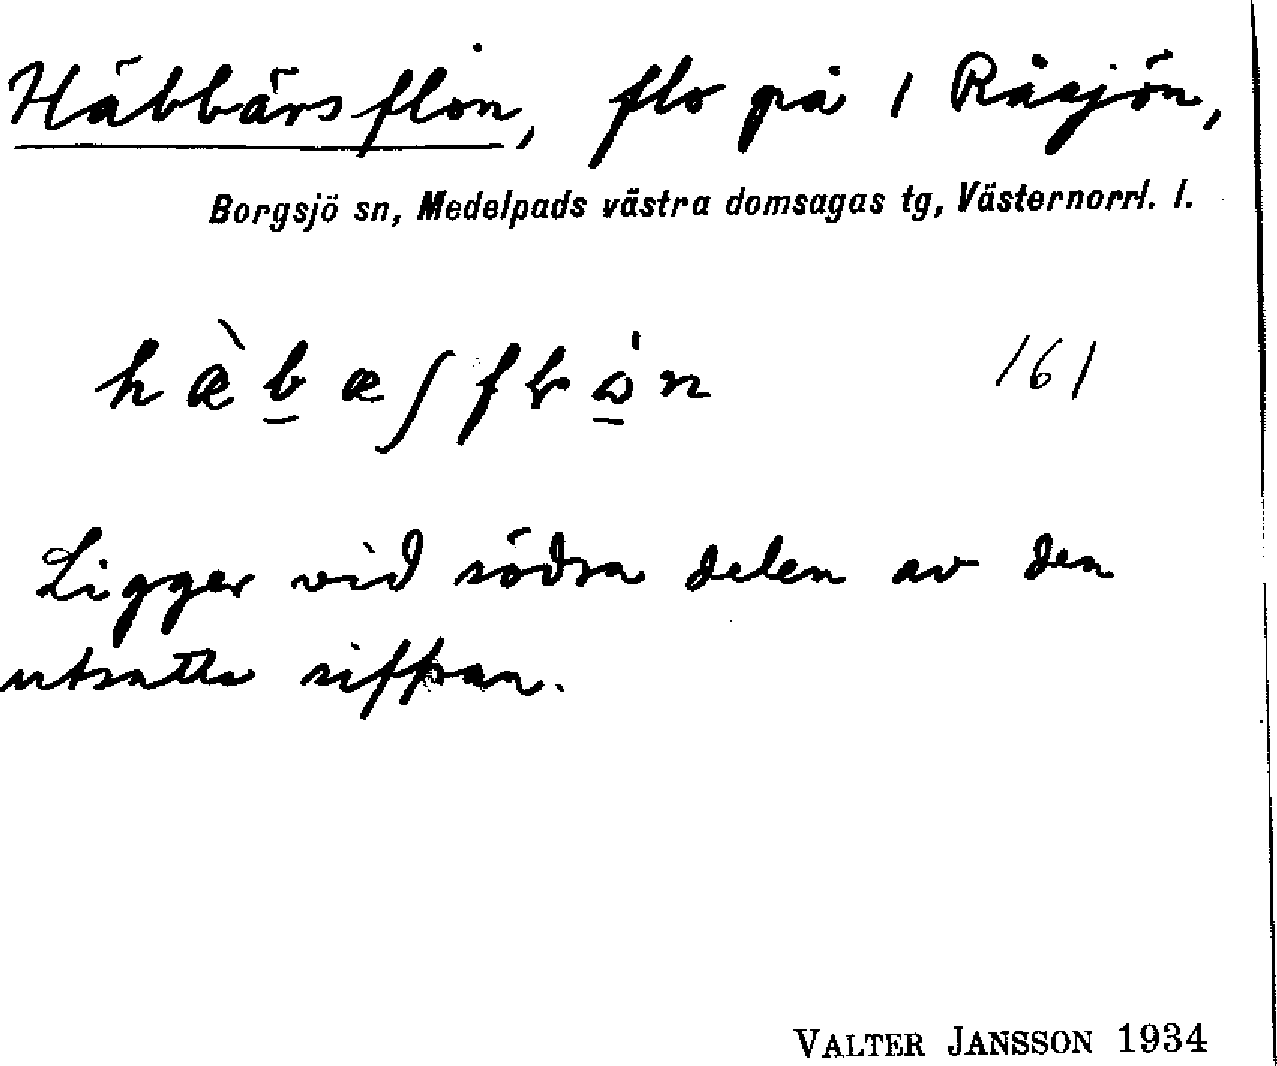 Häbbärsflon, flo på 1 Råsjön,
Borgsjö sn, Medelpads västra domsagas tg, Västernorrl. l.
161
Ligger vid södra delen av den
utsatta siffran.
VALTER JANSSON 1934